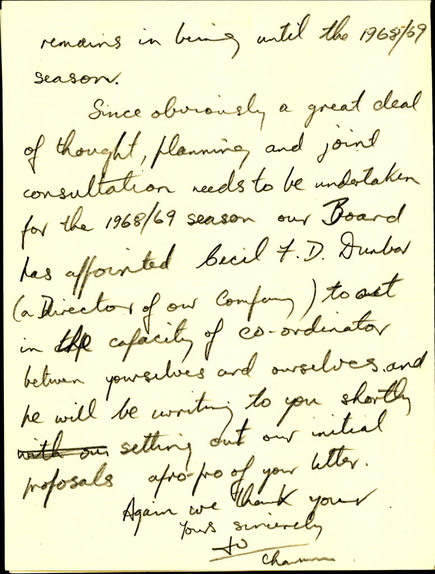 remains in being until the 1968/69
season.
Since obviously a great deal
of thought, planning and joint
consultation needs to be undertaken
for the 1968/69 season our Board
has appointed Cecil F. D. Dunbar
(a Director of our Company) to act
in the capacity of co-ordinator
between yourselves and ourselves and
he will be writing to you shortly
with our setting out our initial
proposals apro-pro of your letter.
Again we thank you
Yours sincerely
Chairman